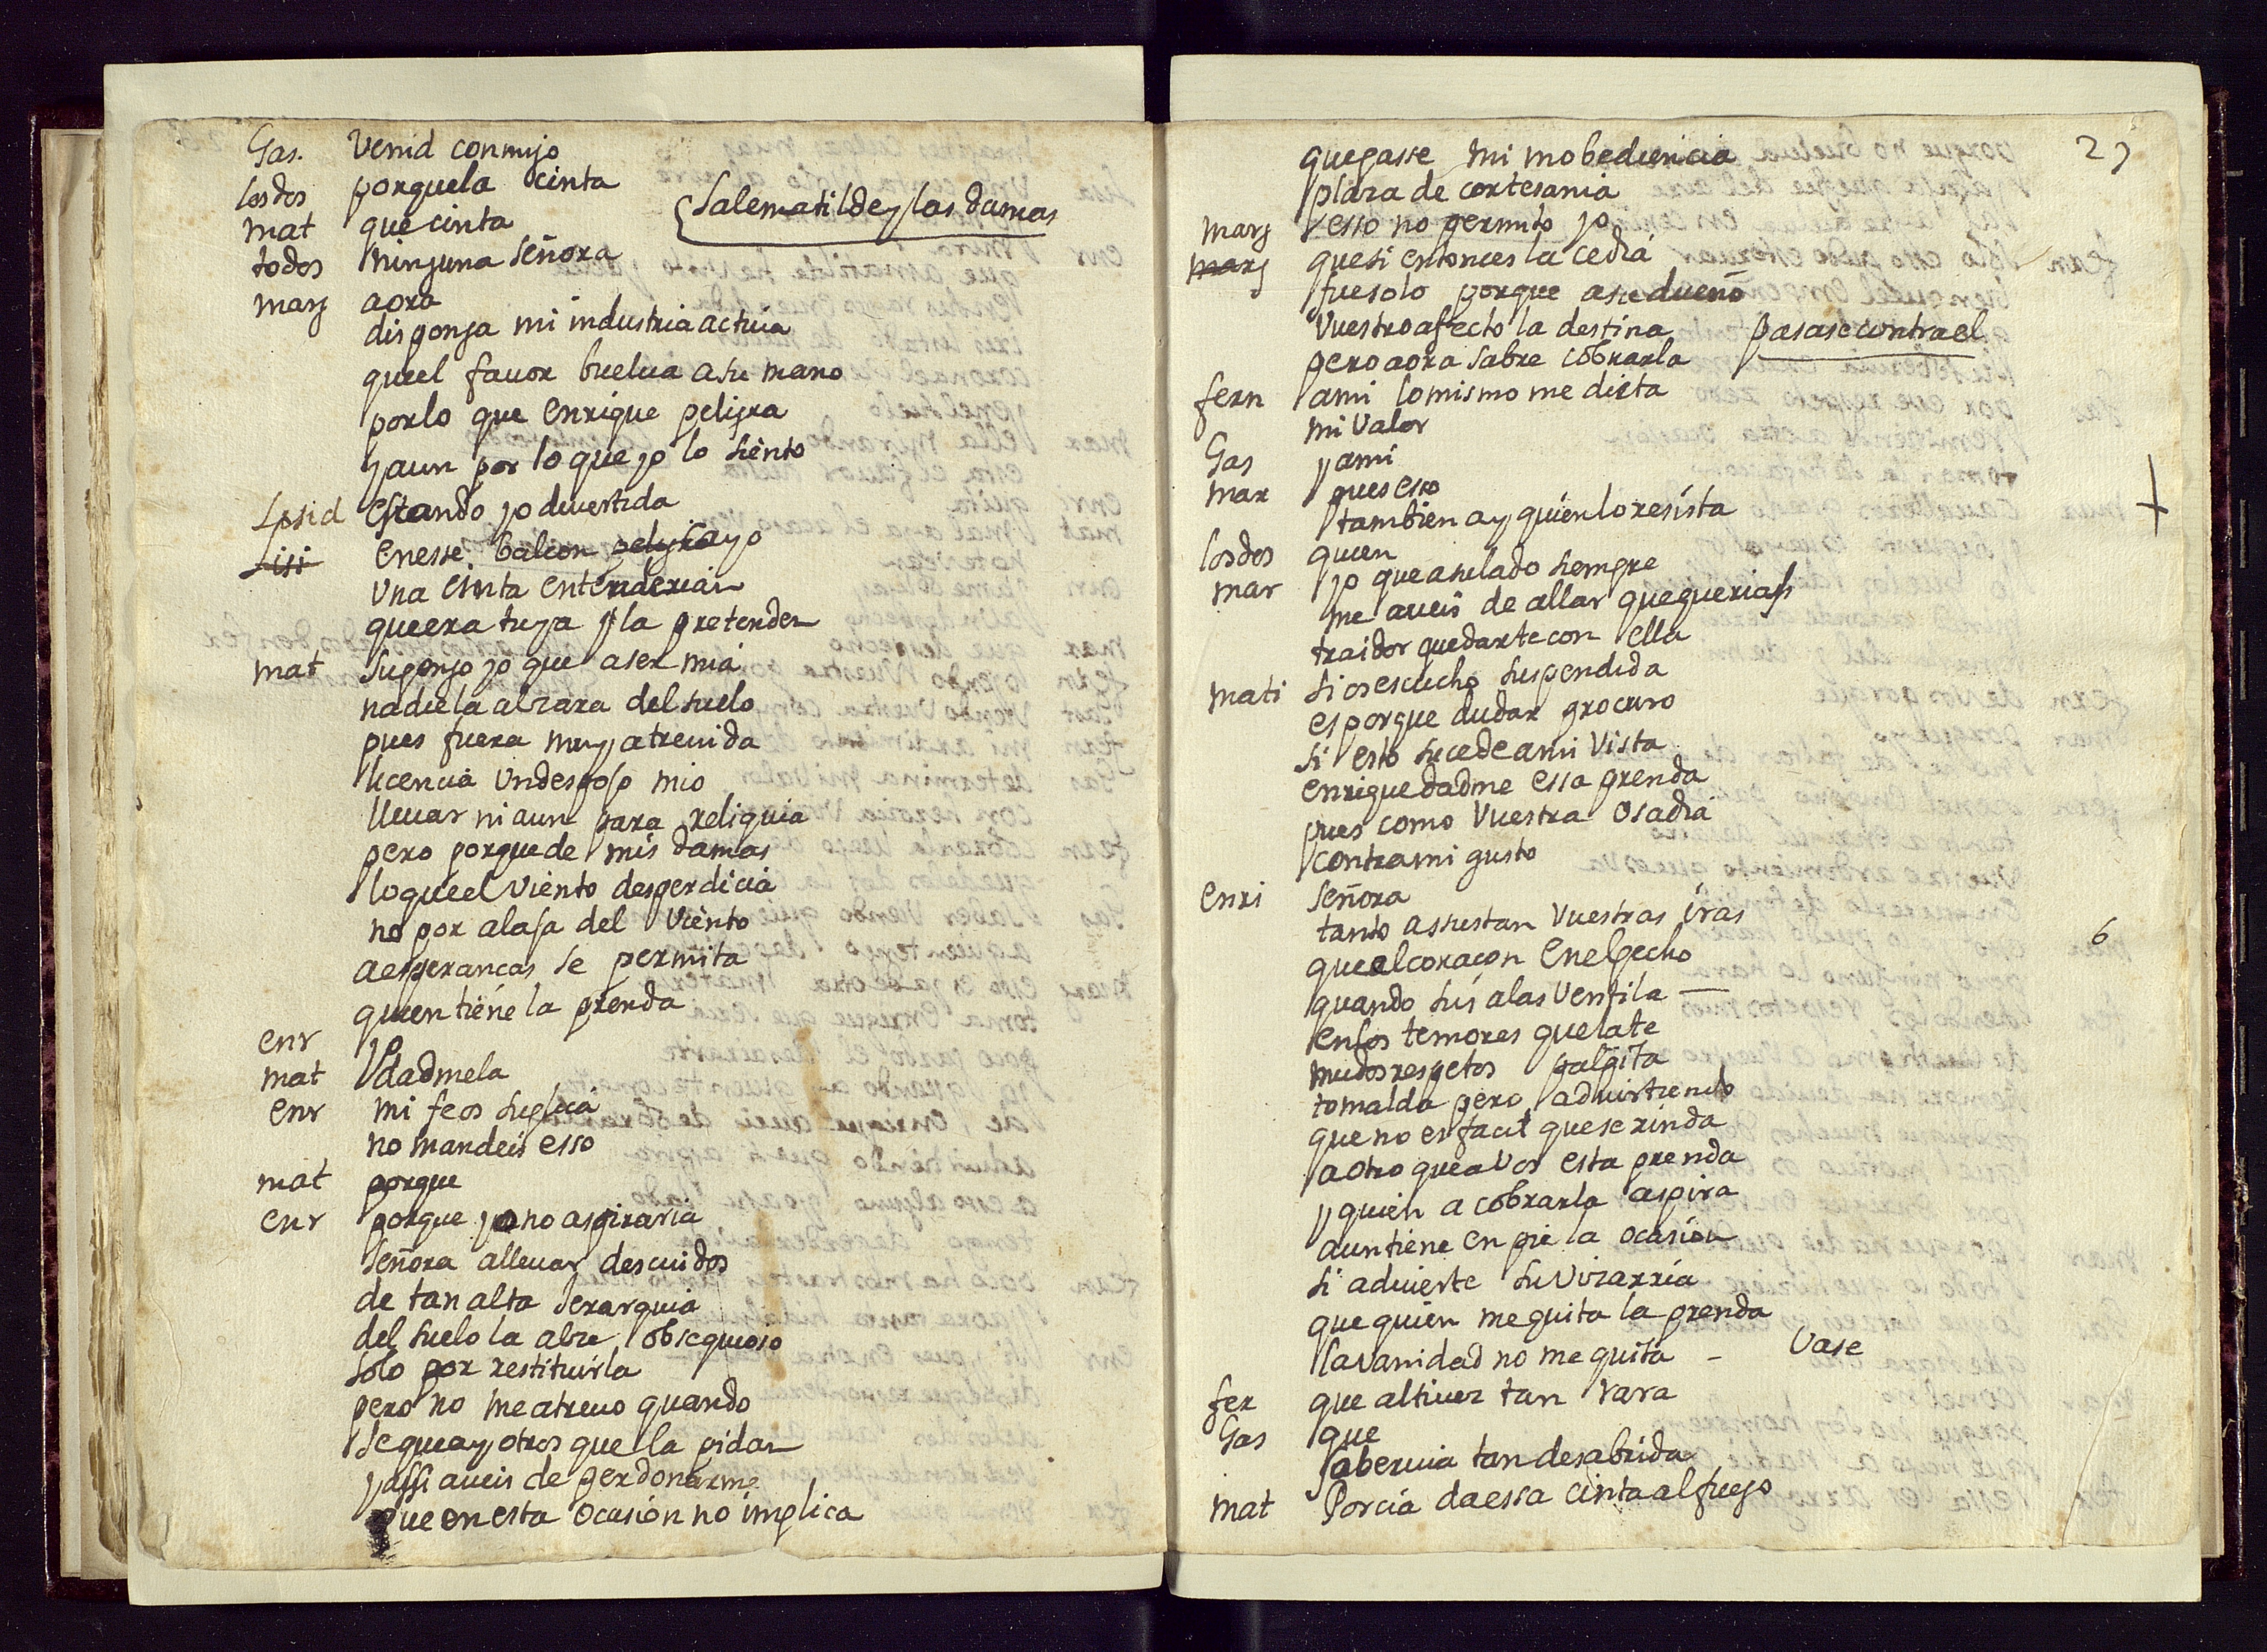 Gas. Venid conmijo
los dos porque la cinta
mat que cinta
{Sale matilde y las damas
todos ninguna señora
marg aora
disponga mi industria actiua
quel fauor buelua a su mano
por lo que enrique peligra
y aun por lo que yo lo siento
estando yo diuertida
Lisi en esse balcon
una cinta entenderian
que era tuya y la pretenden
mat supongo yo que a ser mia
nadie la alzara del suelo
pues fuera muy atreuida
licencia un despojo mio
lleuar ni aun para reliquia
pero porque de mis damas
lo que el viento desperdicia
no por alaja del viento
a esperancas se permita
quien tiene la prenda
enr yo
mat dadmela
enr mi fe os suplica
no mandeis esso
mat porque
enr porque yo no aspiraria
señora alleuar descuidos
de tan alta Jerarquia
del suelo la alze obsequioso
solo por restituirla
pero no me atreuo quando
se que ay otros que la pidan
y assi aueis de perdonarme
que en esta ocasion no implica
27
que passe mi inobediencia
plaza de cortesania
marg esso no permito yo
marg que si entonces la cedia
fue solo porque a su dueño
vuestro afecto la destina
pasase contra el
pero aora sabre cobrarla
fern a mi lo mismo me dicta
mi valor
Gas y a mi
mar pues esso
tambien ay quien lo resista
los dos quien
mar yo que a su lado siempre
me aueis de allar que querias
traidor quedarte con ella
mati si os escucho suspendida
es porque dudar procuro
si esto sucede a mi vista
enrique dadme essa prenda
pues como vuestra osadia
contra mi gusto
enri señora
tanto assustan vuestras iras
6
que al coraçon en el pecho
quando sus alas ventila —
en los temores que late
mudos respetos palpita
tomalda pero aduirtiendo
que no es facil que se rinda
a otro que a vos esta prenda
y quien a cobrarla aspira
aun tiene en pie la ocasion
si aduierte su vizarria
que quien me quita la prenda
la vanidad no me quita – Vase
fer que altiuez tan rara
Gas que
soberuia tan desabrida
mat Porcia da essa cinta al fuego